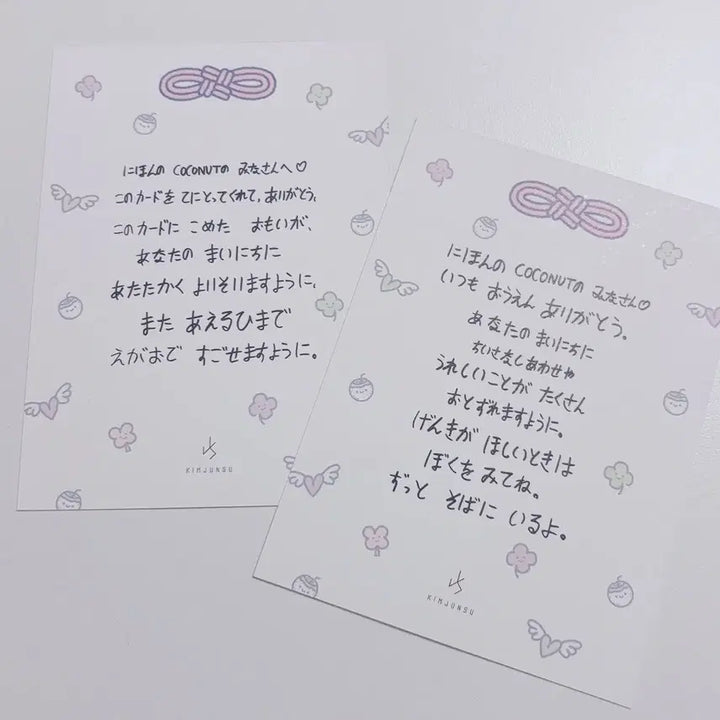 にほんの COCONUTの みなさんへ♡
このカードを てにとってくれて、ありがとう。
このカードに こめた おもいが、
あなたの まいにちに
あたたかく よりそいますように。
また あえるひまで
えがおで すごせますように。
KIMJUNSU
にほんの COCONUTの みなさん♡
いつも おうえん ありがとう。
あなたの まいにちに
ちいさなしあわせや
うれしいことが たくさん
おとずれますように。
げんきが ほしいときは
ぼくを みてね。
ずっと そばに いるよ。
KIMJUNSU